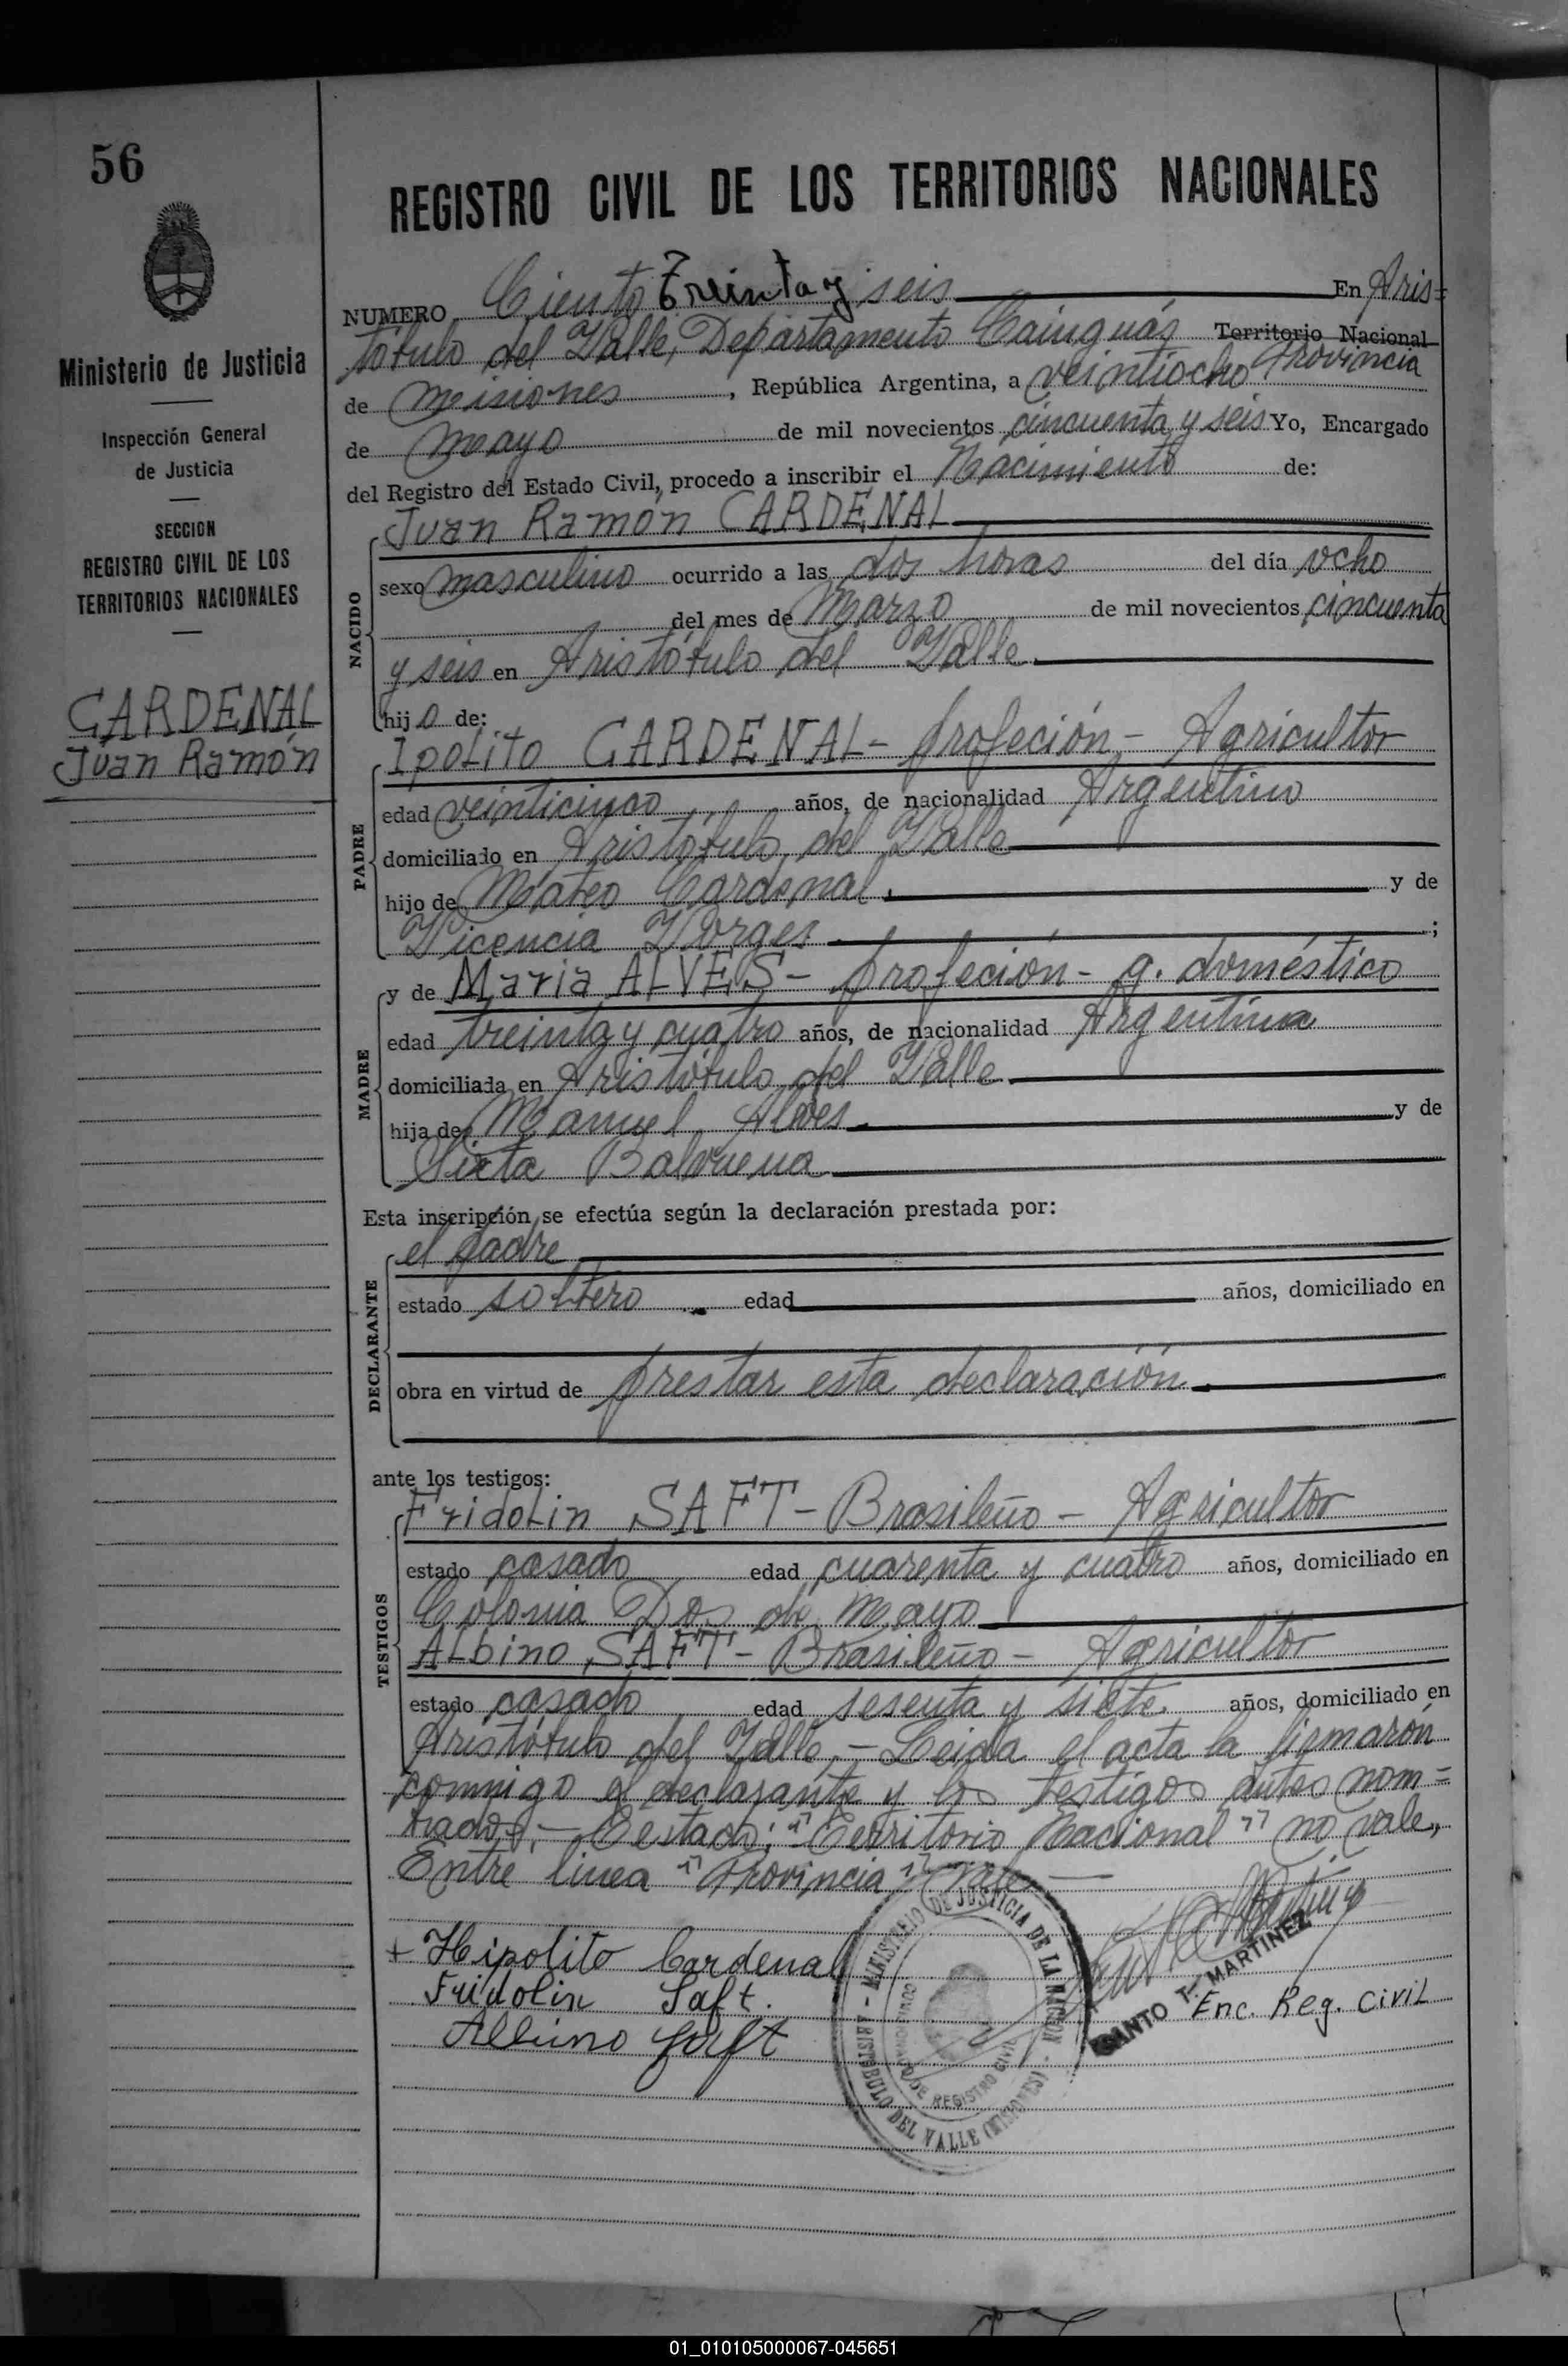 56
Ministerio de Justicia
Inspección General
de Justicia
SECCION
REGISTRO CIVIL DE LOS
TERRITORIOS NACIONALES
CARDENAL
Juan Ramón
REGISTRO CIVIL DE LOS TERRITORIOS NACIONALES
NUMERO Ciento Treinta y seis En Aris=
tótulo del Valle, Departamento Cainguás Territorio Nacional
Provincia
de Misiones, República Argentina, a veintiocho
de Mayo de mil novecientos cincuenta y seis Yo, Encargado
del Registro del Estado Civil, procedo a inscribir el Nacimiento de:
NACIDO
Juan Ramón CARDENAL
sexo masculino ocurrido a las dos horas del día ocho
del mes de Marzo de mil novecientos cincuenta
y seis en Aristótulo del Valle
hijo de:
PADRE
Ipolito CARDENAL- profeción- Agricultor
edad veinticinco años, de nacionalidad Argentino
domiciliado en Aristótulo del Valle
hijo de Mateo Cardenal. y de
Vicencia Vorges ;
MADRE
y de Maria ALVES- profeción- q. doméstico
edad treinta y cuatro años, de nacionalidad Argentina
domiciliada en Aristótulo del Valle
hija de Manuel Alves y de
Sixta Balbuena
Esta inscripción se efectúa según la declaración prestada por:
DECLARANTE
el padre
estado soltero edad años, domiciliado en
obra en virtud de prestar esta declaración
ante los testigos:
TESTIGOS
Fridolin SAFT- Brasileño - Agricultor
estado casado edad cuarenta y cuatro años, domiciliado en
Colonia Dos de Mayo
Albino SAFT- Brasileño - Agricultor
estado casado edad sesenta y siete años, domiciliado en
Aristótulo del Valle,- Leida el acta la firmarón
conmigo el declarante y los testigos antes nom=
brados,- Testado: "Territorio Nacional" no vale,
Entre linea "Provincia" vale
+ Hipolito Cardenal
Fridolin Saft.
Albino Saft
MINISTERIO DE JUSTICIA DE LA NACION
REGISTRO CIVIL
ARISTOBULO DEL VALLE (MISIONES)
SANTO T. MARTINEZ
Enc. Reg. Civil
01_010105000067-045651